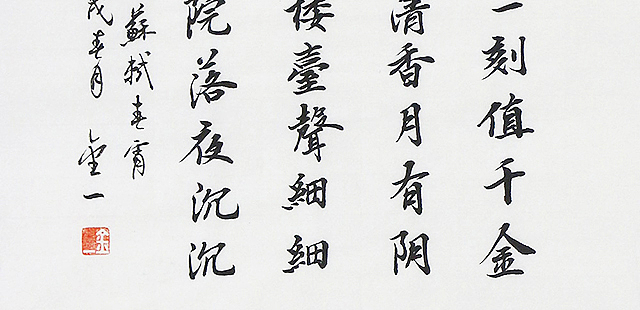 一刻值千金
清香月有阴
楼臺聲細細
院落夜沉沉
蘇軾春宵
戌春月 金一